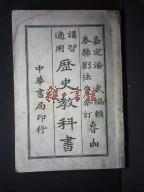 嘉定潘武編輯
無錫劉法曾參訂
講習適用
歷史教科書
春山
中華書局印行